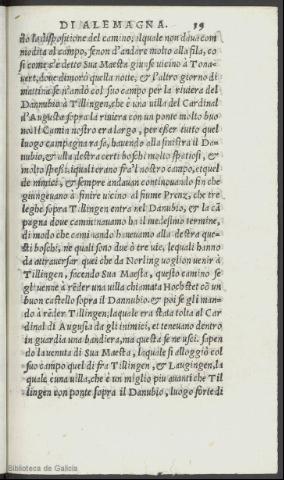 DI ALEMAGNA. 59
to la dispositione del camino, il quale non daua com
modita al campo, senon d'andare molto alla fila, co
si come s'è detto Sua Maesta giunse vicino à Tona=
uert, doue dimorò quella notte, & l'altro giorno di
mattina se n'andò col suo campo per la riuiera del
Dannubio à Tillingen, che è una uilla del Cardinal
d'Augusta sopra la riuiera con un ponte molto buo
no: il Camin nostro era largo, per esser tutto quel
luogo campagna rasa, hauendo alla sinistra il Da=
nubio, & alla destra certi boschi molto spatiosi, &
molto spessi, iquali erano fra'l nostro campo, et quel
de nimici, & sempre andauan continuando fin che
giungeuano à finire uicino al fiume Prenz, che tre
leghe sopra Tillingen entra nel Danubio, & la cã
pagna doue caminauamo ha il medesimo termine,
di modo che caminando haueuamo alla destra que=
sti boschi, ne quali sono due ò tre uie, lequali hanno
da attrauersar quei che da Norling uoglion uenir à
Tillingen, facendo Sua Maesta, questo camino se
gli uenne à rẽder una uilla chiamata Hochstet cõ un
buon castello sopra il Dannubio. & poi se gli man=
dò à rẽder Tillingen, laquale era stata tolta al Car
dinal di Augusta da gli inimici, et teneuano dentro
in guardia una bandiera, ma questa se ne uscì. sapen
do la uenuta di Sua Maesta, laquale si alloggiò col
suo campo quel dì fra Tillingen, & Laugingen, la
quale è una uilla, che è un miglio piu auanti che Til
lingen con ponte sopra il Danubio, luogo forte di
Biblioteca de Galicia